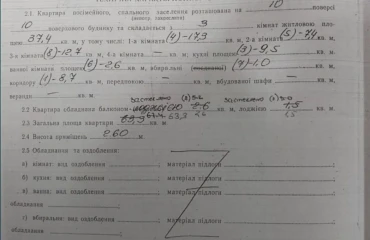 2.1. Квартира посімейного, спального заселення розташована на 10 поверсі
10 поверхового будинку та складається з 3 кімнат житловою пло-
щею 37,4 кв. м, у тому числі: 1-а кімната (4)-17,3 кв. м, 2-а кімната (5)-7,4
3-я кімната (6)-12,7 кв. м, 4-а кімната — кв. м; кухні площею (3)-9,5
ванної кімнати площею (2)-2,6 кв. м, вбиральні (1)-1,0 кв. м,
коридору 8,7 кв. м, передпокою — кв. м, вбудованої шафи — кв. м,
веранди — кв. м.
2.2. Квартира обладнана балконом 2,6 кв. м, лоджією 1,5 кв. м.
2.3. Загальна площа квартири 63,3 кв. м.
2.4. Висота приміщень 2.60 м.
2.5. Обладнання та оздоблення:
а) кімнат: вид оздоблення ; матеріал підлоги
обладнання ;
б) кухня: вид оздоблення ; матеріал підлоги
обладнання ;
в) ванн: вид оздоблення ; матеріал підлоги
обладнання ;
г) вбиральня: вид оздоблення ; матеріал підлоги